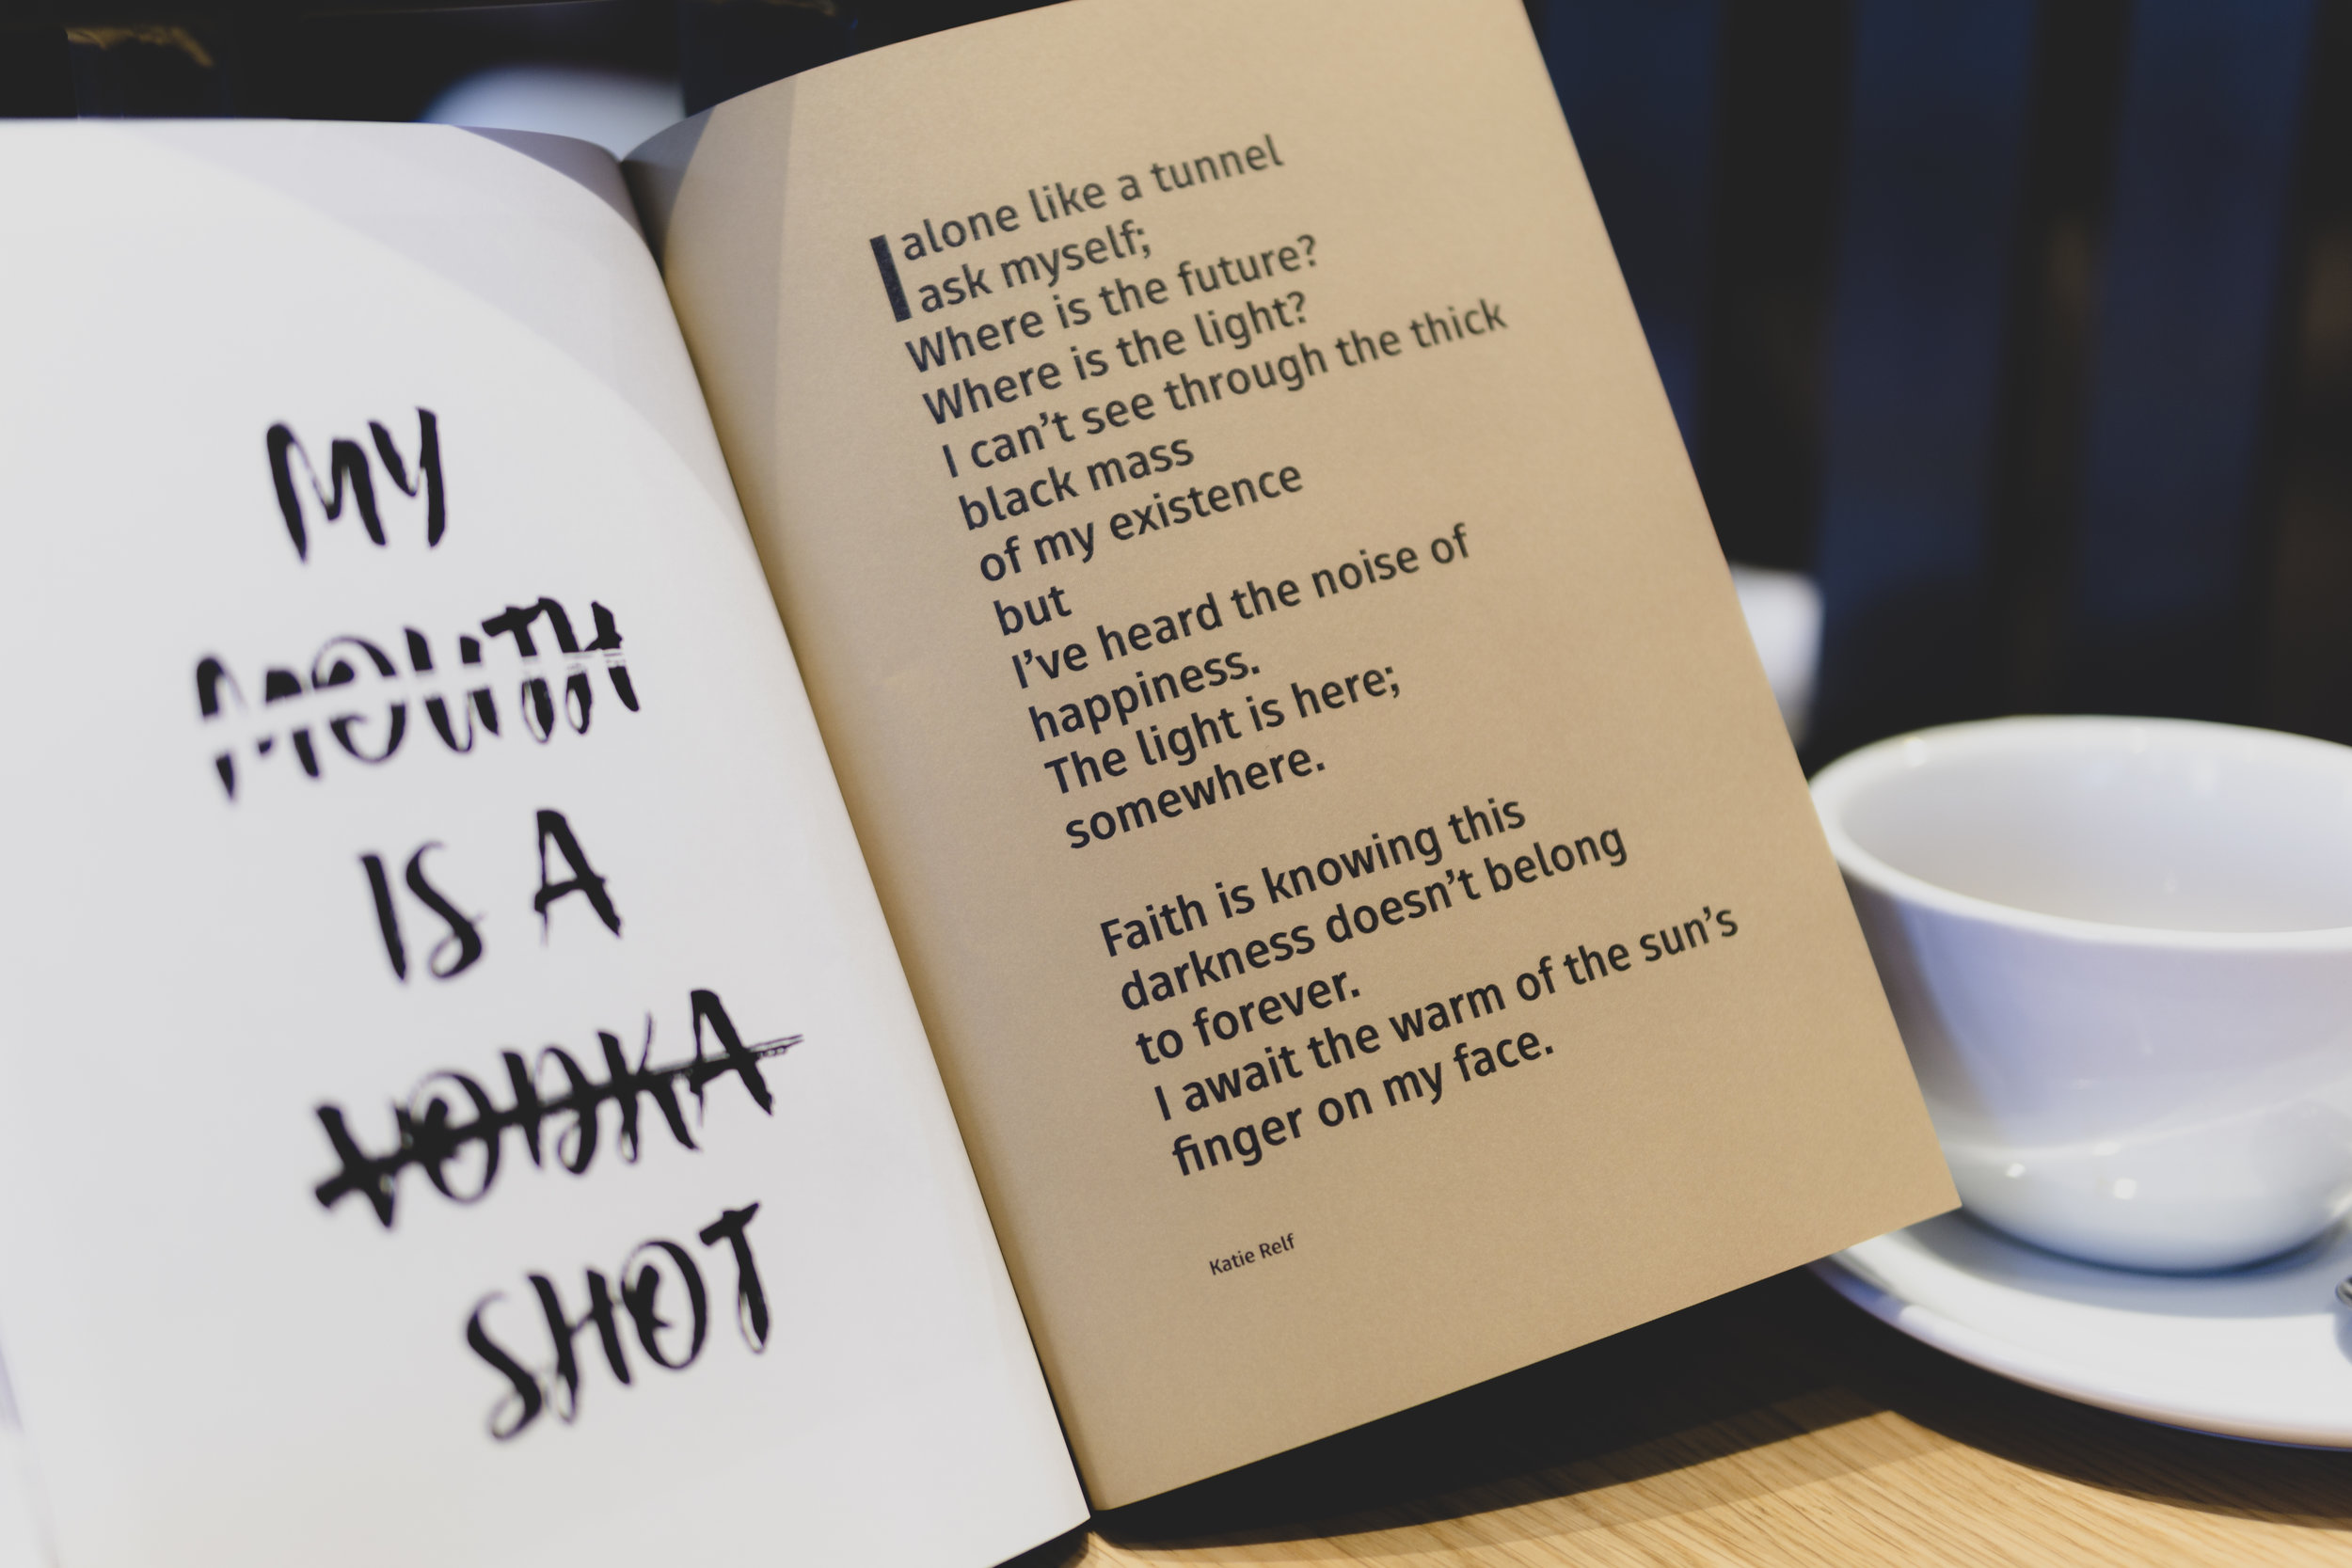 MY
MOUTH
IS A
VODKA
SHOT
I alone like a tunnel
ask myself;
Where is the future?
Where is the light?
I can't see through the thick
black mass
of my existence
but
I've heard the noise of
happiness.
The light is here;
somewhere.
Faith is knowing this
darkness doesn't belong
to forever.
I await the warm of the sun's
finger on my face.
Katie Relf